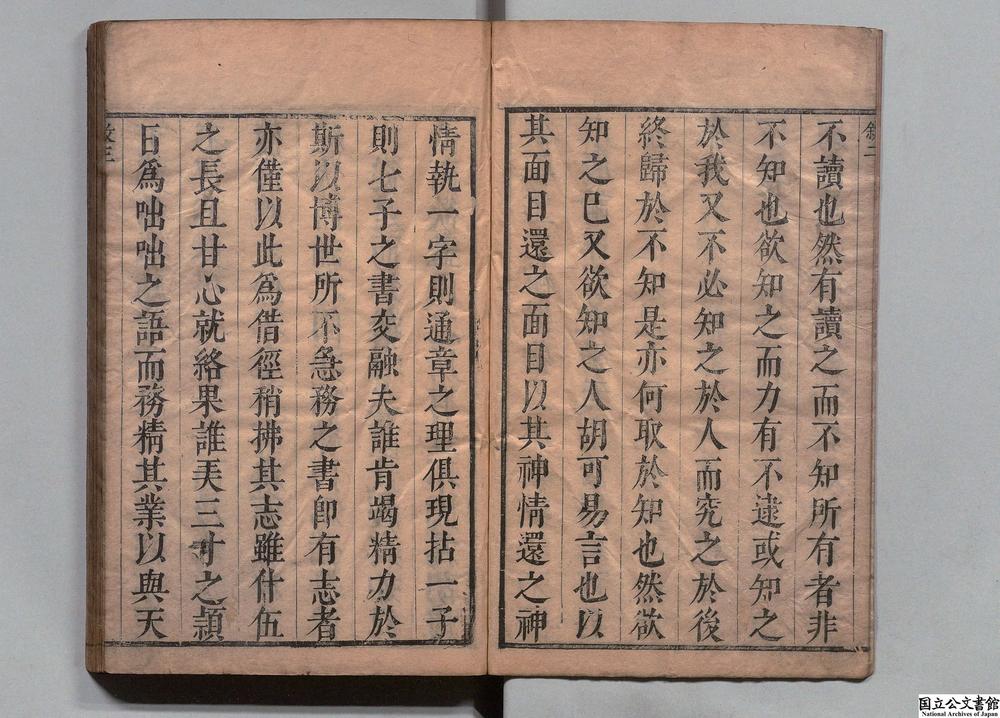 敘二
不讀也然有讀之而不知所有者非
不知也欲知之而力有不逮或知之
於我又不必知之於人而究之於後
終歸於不知是亦何取於知也然欲
知之已又欲知之人胡可易言也以
其面目還之面目以其神情還之神
情執一字則通章之理俱現拈一子
則七子之書交融夫誰肯竭精力於
斯以博世所不急務之書即有志者
亦僅以此爲借徑稍拂其志雖什伍
之長且甘心就絡果誰弄三寸之穎
日爲咄咄之語而務精其業以與天
敘三
国立公文書館
National Archives of Japan